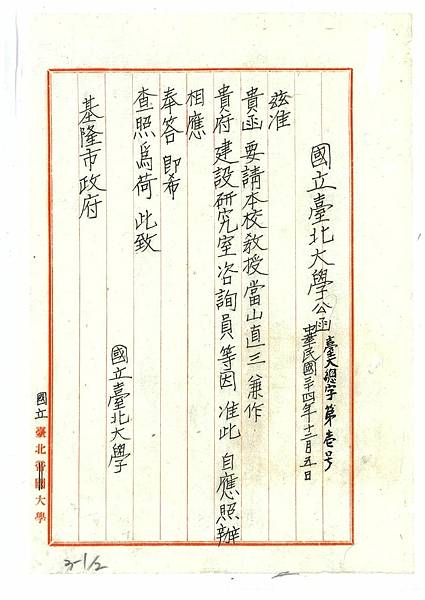 國立臺北大學公函
臺大總字第壹号
中華民國三十四年十二月五日
茲准
貴函 要請本校教授當山直三兼作
貴府建設研究室咨詢員等因 准此 自應照辦
相應
奉答 即希
查照為荷 此致
基隆市政府
國立臺北大學
國立 臺北帝國大學
3-1/2